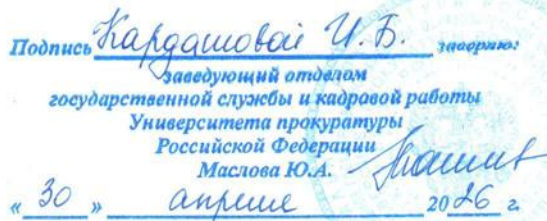 Подпись Кардашовой И. Б. заверяю:
заведующий отделом
государственной службы и кадровой работы
Университета прокуратуры
Российской Федерации
Маслова Ю.А.
« 30 » апреля 2026 г.